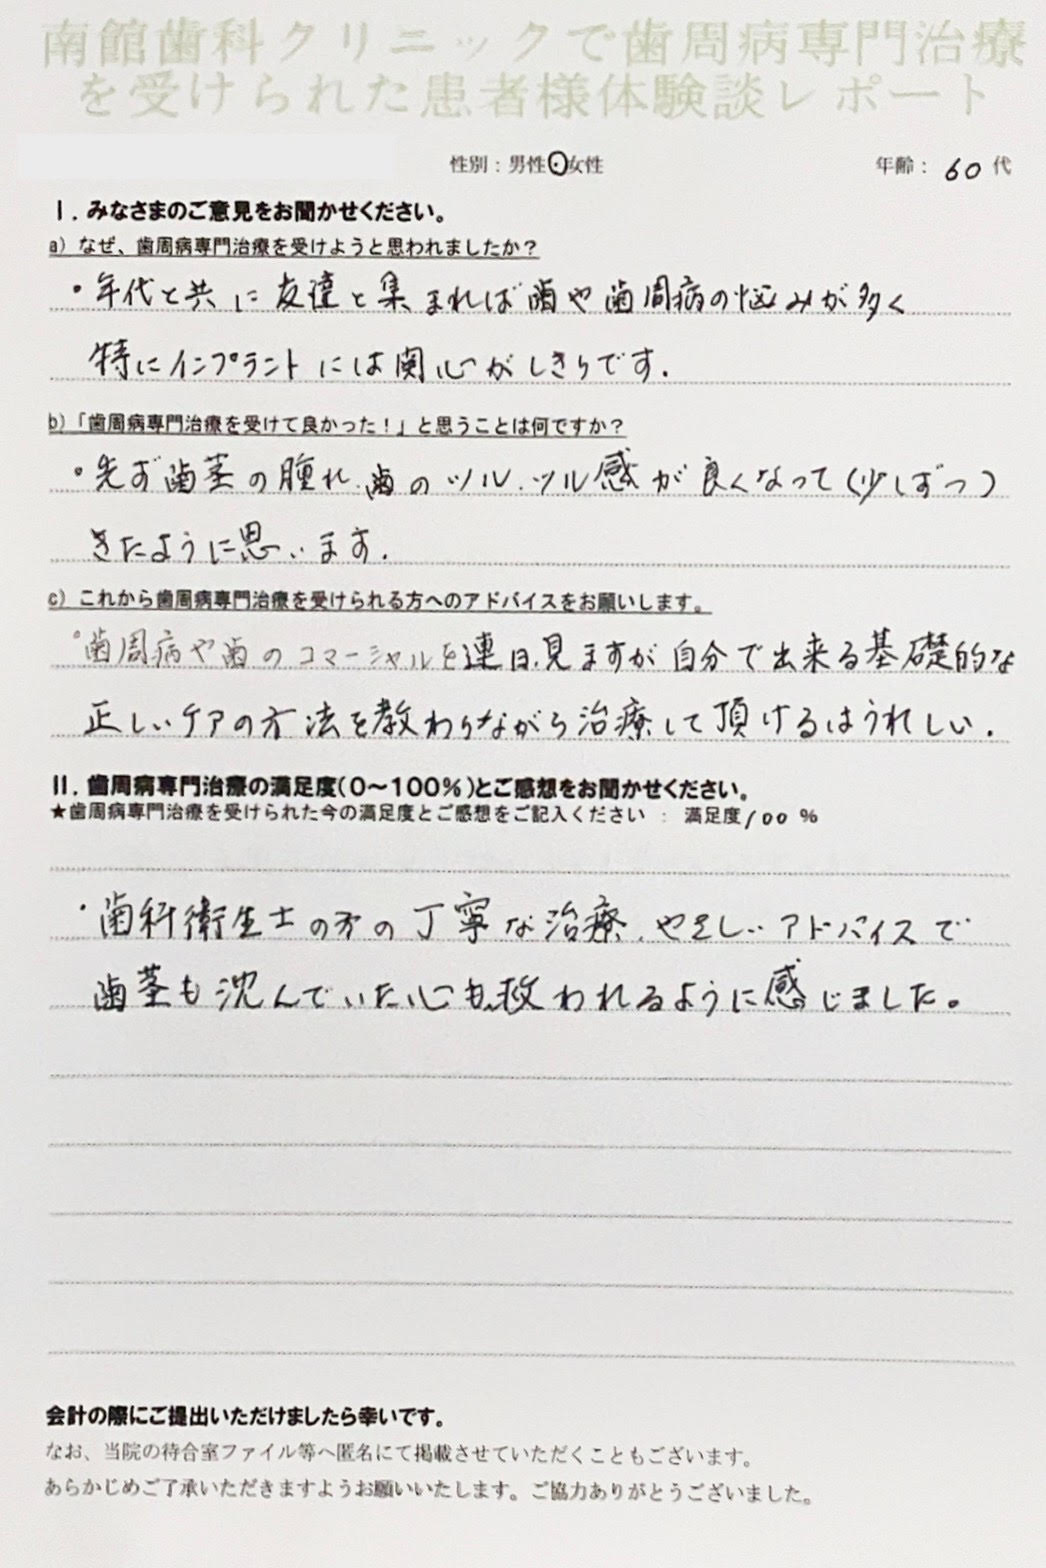 南館歯科クリニックで歯周病専門治療
を受けられた患者様体験談レポート
性別：男性・女性 年齢： 60 代
Ⅰ．みなさまのご意見をお聞かせください。
a）なぜ、歯周病専門治療を受けようと思われましたか？
・年代と共に友達と集まれば歯や歯周病の悩みが多く
特にインプラントには関心がしきりです.
b）「歯周病専門治療を受けて良かった！」と思うことは何ですか？
・先ず歯茎の腫れ.歯のツル.ツル感が良くなって(少しずつ)
きたように思います.
c）これから歯周病専門治療を受けられる方へのアドバイスをお願いします。
・歯周病や歯のコマーシャルを連日.見ますが自分で出来る基礎的な
正しいケアの方法を教わりながら治療して頂けるはうれしい.
Ⅱ．歯周病専門治療の満足度（０～１００％）とご感想をお聞かせください。
★歯周病専門治療を受けられた今の満足度とご感想をご記入ください ： 満足度 100 ％
・歯科衛生士の方の丁寧な治療.やさしいアドバイスで
歯茎も沈んでいた心も救われるように感じました。
会計の際にご提出いただけましたら幸いです。
なお、当院の待合室ファイル等へ匿名にて掲載させていただくこともございます。
あらかじめご了承いただきますようお願いいたします。ご協力ありがとうございました。